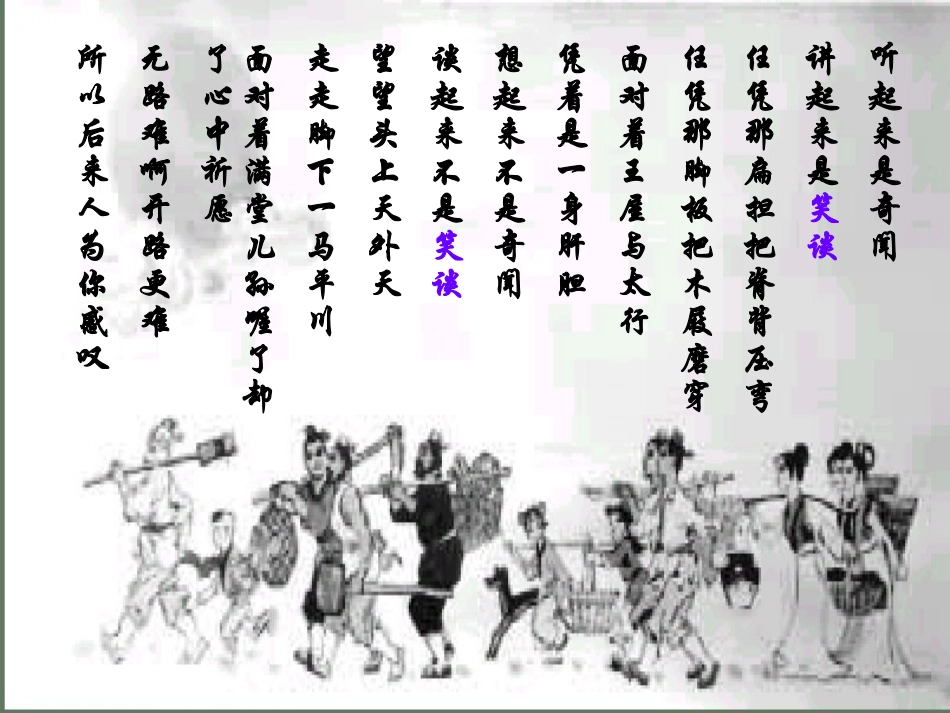 听起来是奇闻
讲起来是笑谈
任凭那扁担把脊背压弯
任凭那脚板把木屐磨穿
面对着王屋与太行
凭着是一身肝胆
想起来不是奇闻
谈起来不是笑谈
望望头上天外天
走走脚下一马平川
面对着满堂儿孙喔了却
了心中祈愿
无路难啊开路更难
所以后来人为你感叹